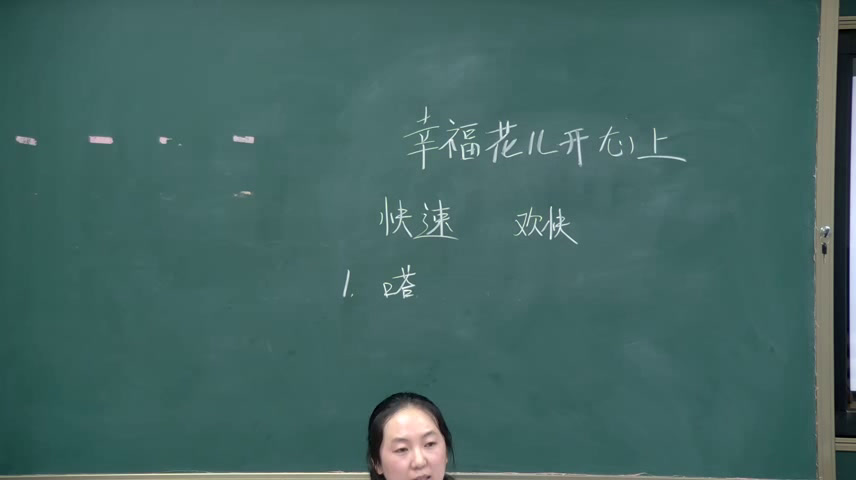 幸福花儿开心上
快速 欢快
1. 嗒